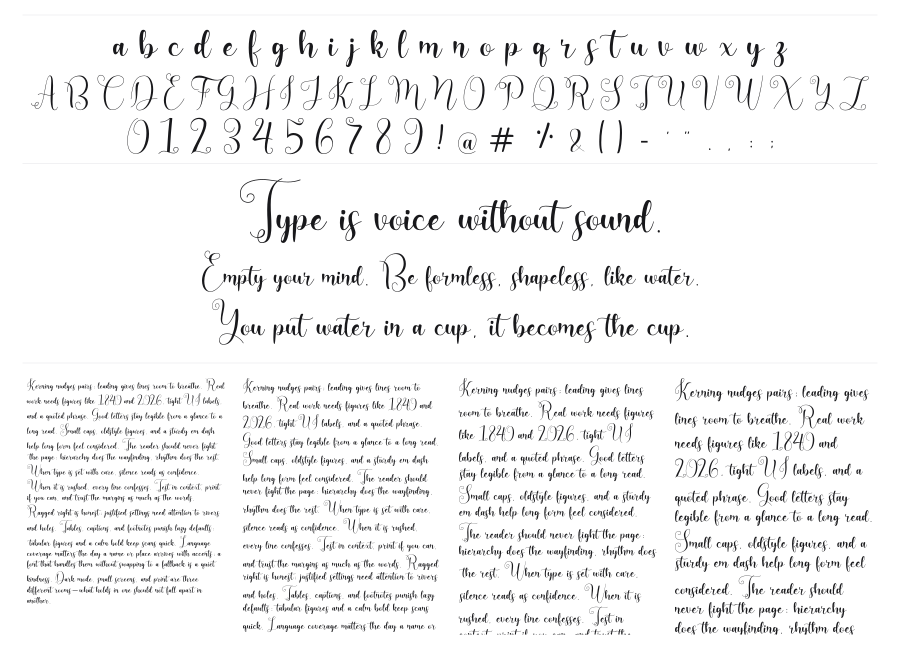 a b c d e f g h i j k l m n o p q r s t u v w x y z
A B C D E F G H I J K L M N O P Q R S T U V W X Y Z
0 1 2 3 4 5 6 7 8 9 ! @ # % & ( ) - ' " . , : ;
Type is voice without sound.
Empty your mind. Be formless, shapeless, like water.
You put water in a cup, it becomes the cup.
Kerning nudges pairs; leading gives lines room to breathe. Real
work needs figures like 1840 and 2026, tight UI labels,
and a quoted phrase. Good letters stay legible from a glance to a
long read. Small caps, oldstyle figures, and a sturdy em dash
help long form feel considered. The reader should never fight
the page: hierarchy does the wayfinding, rhythm does the rest.
When type is set with care, silence reads as confidence.
When it is rushed, every line confesses. Test in context, print
if you can, and trust the margins as much as the words.
Ragged right is honest; justified settings need attention to rivers
and holes. Tables, captions, and footnotes punish lazy defaults:
tabular figures and a calm bold keep scans quick. Language
coverage matters the day a name or place arrives with accents; a
font that handles them without swapping to a fallback is a quiet
kindness. Dark mode, small screens, and print are three
different rooms—what holds in one should not fall apart in
another.
Kerning nudges pairs; leading gives lines room to
breathe. Real work needs figures like 1840 and
2026, tight UI labels, and a quoted phrase.
Good letters stay legible from a glance to a long read.
Small caps, oldstyle figures, and a sturdy em dash
help long form feel considered. The reader should
never fight the page: hierarchy does the wayfinding,
rhythm does the rest. When type is set with care,
silence reads as confidence. When it is rushed,
every line confesses. Test in context, print if you can,
and trust the margins as much as the words. Ragged
right is honest; justified settings need attention to rivers
and holes. Tables, captions, and footnotes punish lazy
defaults: tabular figures and a calm bold keep scans
quick. Language coverage matters the day a name or
Kerning nudges pairs; leading gives lines
room to breathe. Real work needs figures
like 1840 and 2026, tight UI
labels, and a quoted phrase. Good letters
stay legible from a glance to a long read.
Small caps, oldstyle figures, and a sturdy
em dash help long form feel considered.
The reader should never fight the page:
hierarchy does the wayfinding, rhythm does
the rest. When type is set with care,
silence reads as confidence. When it is
rushed, every line confesses. Test in
context, print if you can, and trust the
Kerning nudges pairs; leading gives
lines room to breathe. Real work
needs figures like 1840 and
2026, tight UI labels, and a
quoted phrase. Good letters stay
legible from a glance to a long read.
Small caps, oldstyle figures, and a
sturdy em dash help long form feel
considered. The reader should
never fight the page: hierarchy
does the wayfinding, rhythm does